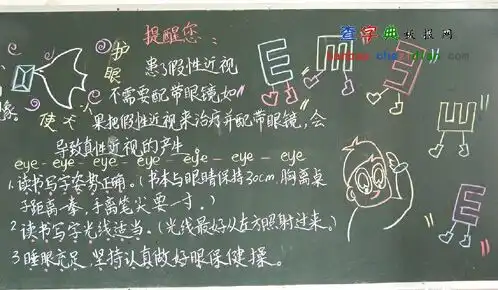 查字典 板报网
提醒您:
护眼使
患了假性近视
不需要配带眼镜,如
果把假性近视来治疗并配带眼镜,会
导致真性近视的产生
eye - eye - eye - eye - eye - eye - eye
1.读书写字姿势正确。(书本与眼睛保持30cm,胸离桌
子距离一拳,手离笔尖要一寸。)
2.读书写字光线适当。(光线最好从左方照射过来。)
3.睡眠充足,坚持认真做好眼保健操。
E
E
E
E
E